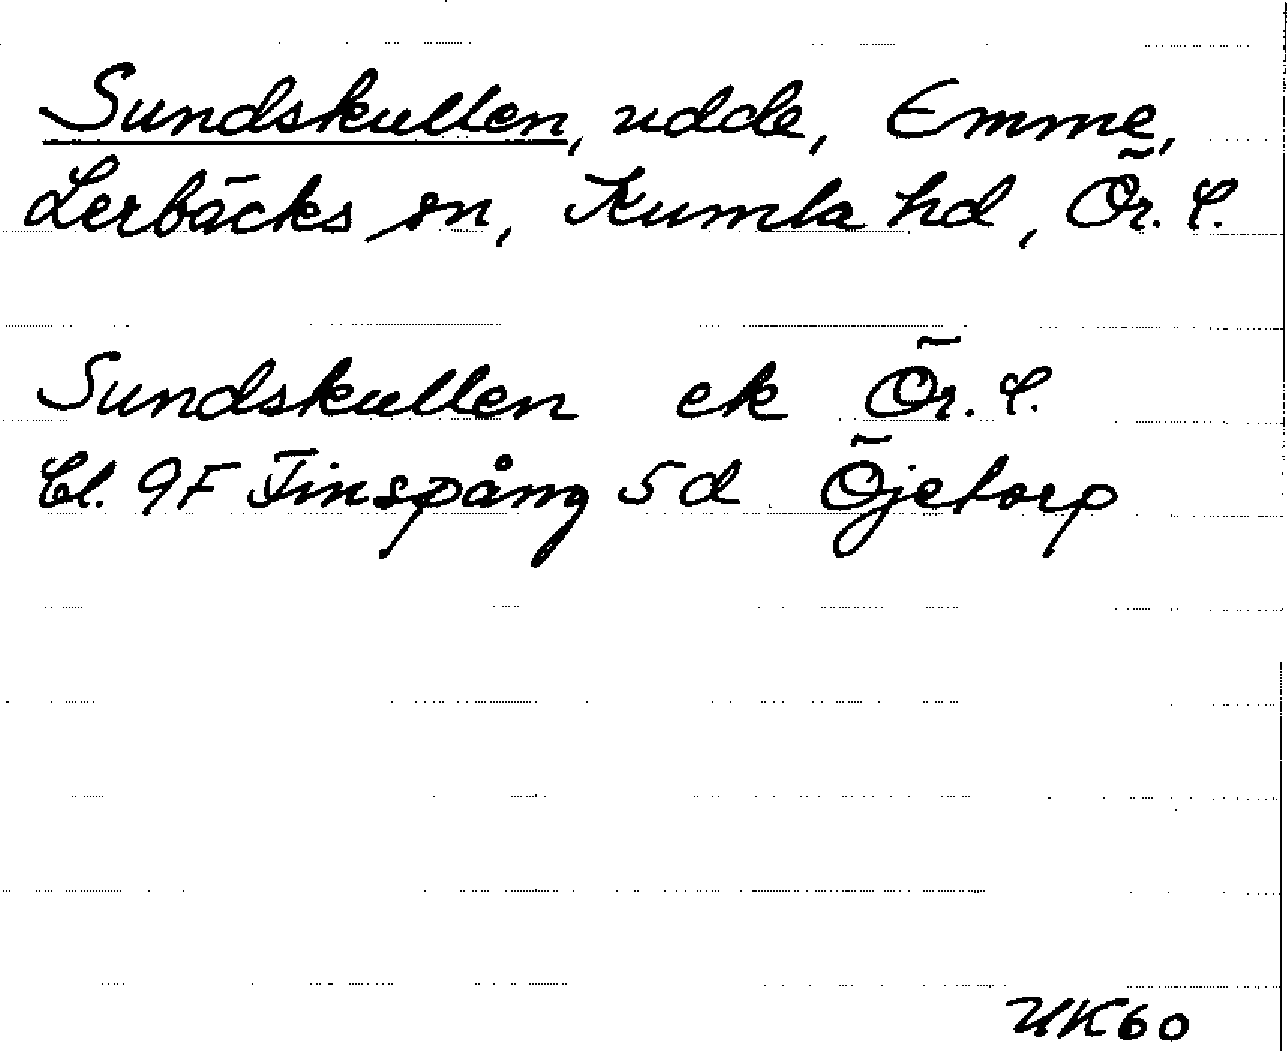 Sundskullen, udde, Emme,
Lerbäcks sn, Kumla hd, Ör. l.
Sundskullen ek Ör. l.
bl. 9F Finspång 5 d Öjetorp
UK60